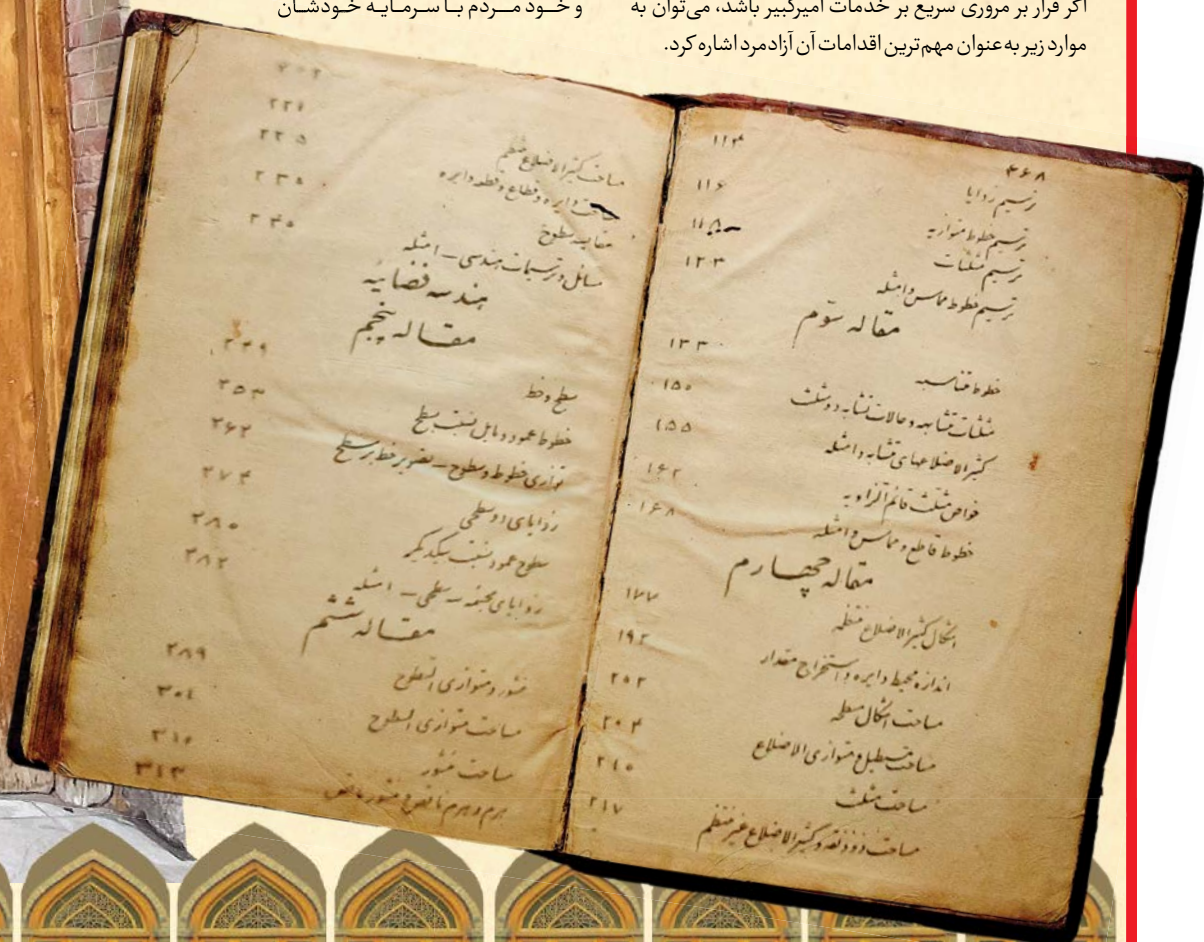 اگر قرار بر مروری سریع بر خدمات امیرکبیر باشد، می‌توان به
موارد زیر به‌عنوان مهم‌ترین اقدامات آن آزادمرد اشاره کرد.
و خود مردم با سرمایه خودشان
۴۶۸
ترسیم زوایا ۱۱۴
ترسیم خطوط متوازیه ۱۱۶
ترسیم مثلثات ۱۱۸
ترسیم خطوط مماس و امثله ۱۲۳
مقاله سوم
خطوط متناسبه ۱۳۳
مثلثات متشابهه و حالات تشابه دو مثلث ۱۵۰
کثیرالاضلاعهای متشابه و امثله ۱۵۵
خواص مثلث قائم الزاویه ۱۶۲
خطوط قاطع و مماس و امثله ۱۶۸
مقاله چهارم
اشکال کثیرالاضلاع منتظمه ۱۷۷
اندازه محیط دایره و استخراج مقدار ۱۹۲
مساحت اشکال مسطحه ۲۰۲
مساحت مستطیل و متوازی الاضلاع ۲۰۴
مساحت مثلث ۲۱۰
مساحت ذوذنقه و کثیرالاضلاع غیر منتظم ۲۱۷
مساحت کثیرالاضلاع منتظم
مساحت دایره و قطاع و قطعه دایره ۲۲۵
مقایسه سطوح ۲۳۰
مسائل و ترسیمات هندسی - امثله ۲۴۰
هندسه فضائیه
مقاله پنجم
سطح و خط ۲۴۹
خطوط عمود و مایل نسبت بسطح ۲۵۳
توازی خطوط و سطوح - تصویر خط بر سطح ۲۶۲
زوایای دو سطحی ۲۷۴
سطوح عمود نسبت بیکدیگر ۲۸۰
زوایای مجسمه - سطحی - امثله ۲۸۲
مقاله ششم
منشور و متوازی السطوح ۲۸۹
مساحت متوازی السطوح ۳۰۱
مساحت منشور ۳۱۰
هرم و هرم ناقص و منشور ناقص ۳۱۳